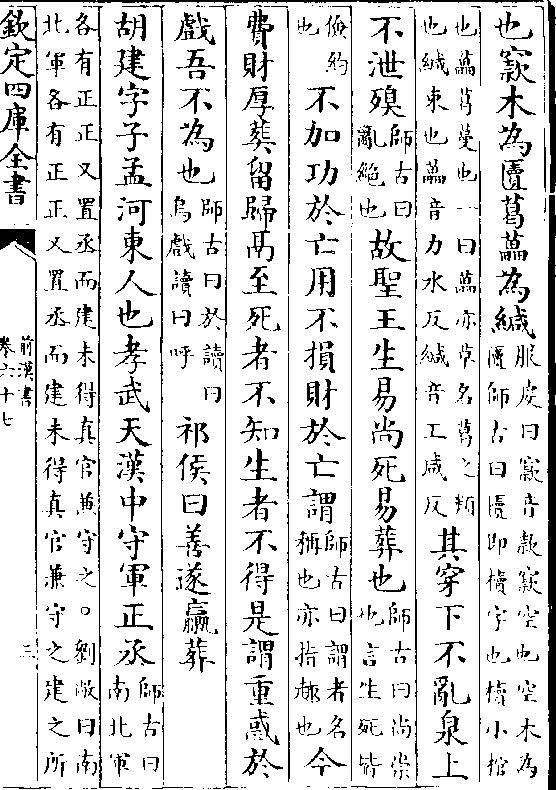 也窾木為匵葛藟為緘服虔曰窾音款窾空也空木為匵師古曰匵即櫝字也櫝小棺
也藟葛蔓也一曰藟亦草名葛之類也緘束也藟音力水反緘音工咸反其穿下不亂泉上
不泄殠師古曰亂絶也故聖王生易尚死易葬也師古曰尚崇也言生死皆
儉約也不加功於亡用不損財於亡謂師古曰謂者名稱也亦指趣也今
費財厚葬留歸鬲至死者不知生者不得是謂重惑於
戲吾不為也師古曰於讀曰烏戲讀曰呼祁侯曰善遂臝葬
胡建字子孟河東人也孝武天漢中守軍正丞師古曰南北軍
各有正正又置丞而建未得真官兼守之○劉敞曰南
北軍各有正正又置丞而建未得真官兼守之建之所
欽定四庫全書
前漢書
卷六十七
三